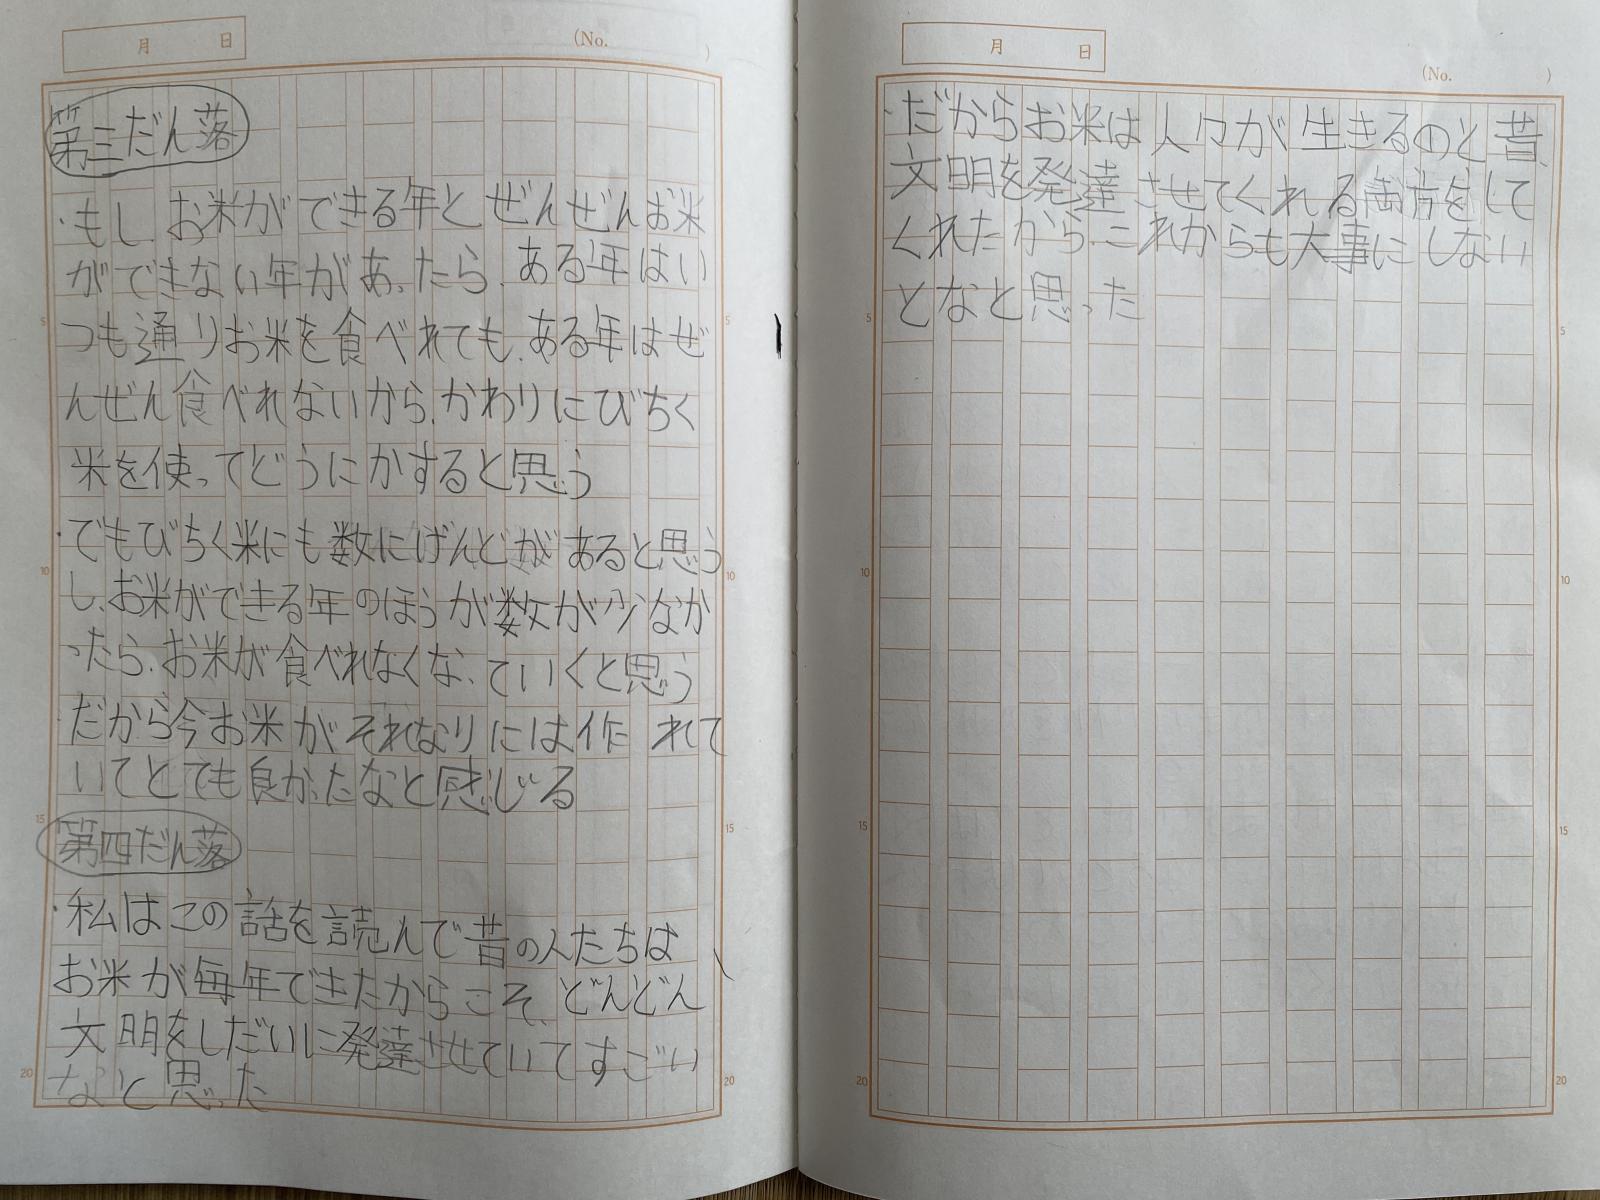 月 日 (No. )
第三だん落
・もし、お米ができる年とぜんぜんお米
ができない年があったら、ある年はい
つも通りお米を食べれても、ある年はぜ
んぜん食べれないから、かわりにびちく
米を使ってどうにかすると思う
・でもびちく米にも数にげんどがあると思う
し、お米ができる年のほうが数が少なか
ったら、お米が食べれなくなっていくと思う
・だから今お米がそれなりには作れて
いてとても良かったなと感じる
第四だん落
・私はこの話を読んで昔の人たちは
お米が毎年できたからこそ、どんどん
文明をしだいに発達させていてすごい
なと思った
5
10
15
20
5
10
15
20
月 日 (No. )
・だからお米は人々が生きるのと昔、
文明を発達させてくれる両方をして
くれたから、これからも大事にしない
となと思った
5
10
15
20
5
10
15
20